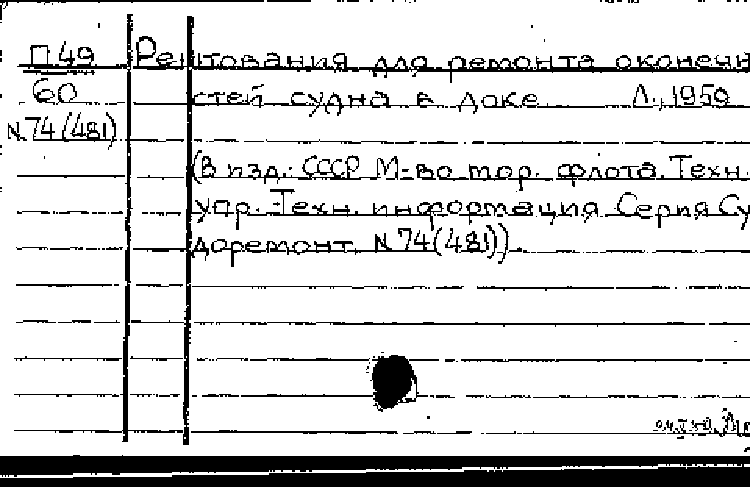 П49
60
N.74(481)
Рештования для ремонта оконечн
стей судна в доке Л., 1959
(В изд.: СССР М-во мор. флота. Техн.
упр. Техн. информация Серия Су
доремонт. N 74(481)).